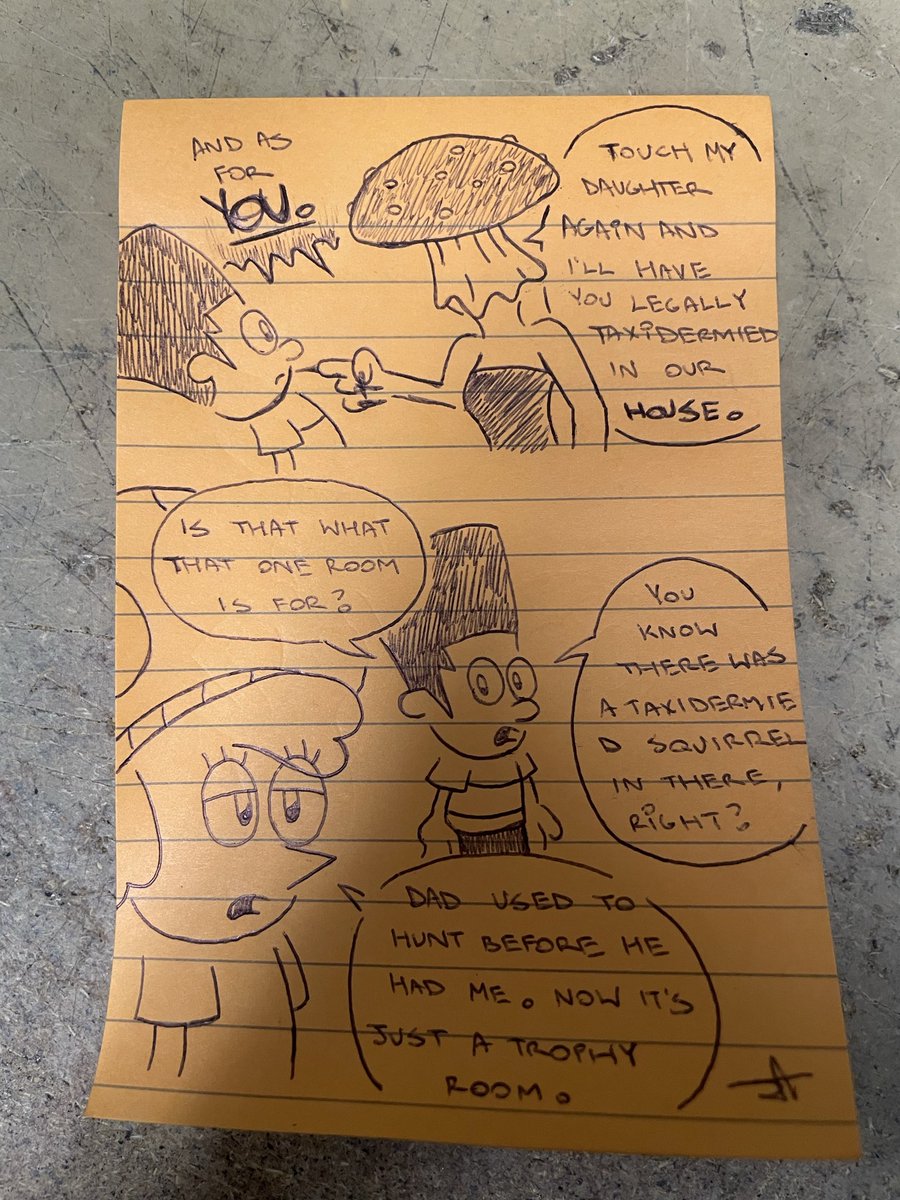 AND AS
FOR
YOU.
TOUCH MY
DAUGHTER
AGAIN AND
I'LL HAVE
YOU LEGALLY
TAXIDERMIED
IN OUR
HOUSE.
IS THAT WHAT
THAT ONE ROOM
IS FOR?
YOU
KNOW
THERE WAS
A TAXIDERMIE
D SQUIRREL
IN THERE,
RIGHT?
DAD USED TO
HUNT BEFORE HE
HAD ME. NOW IT'S
JUST A TROPHY
ROOM.